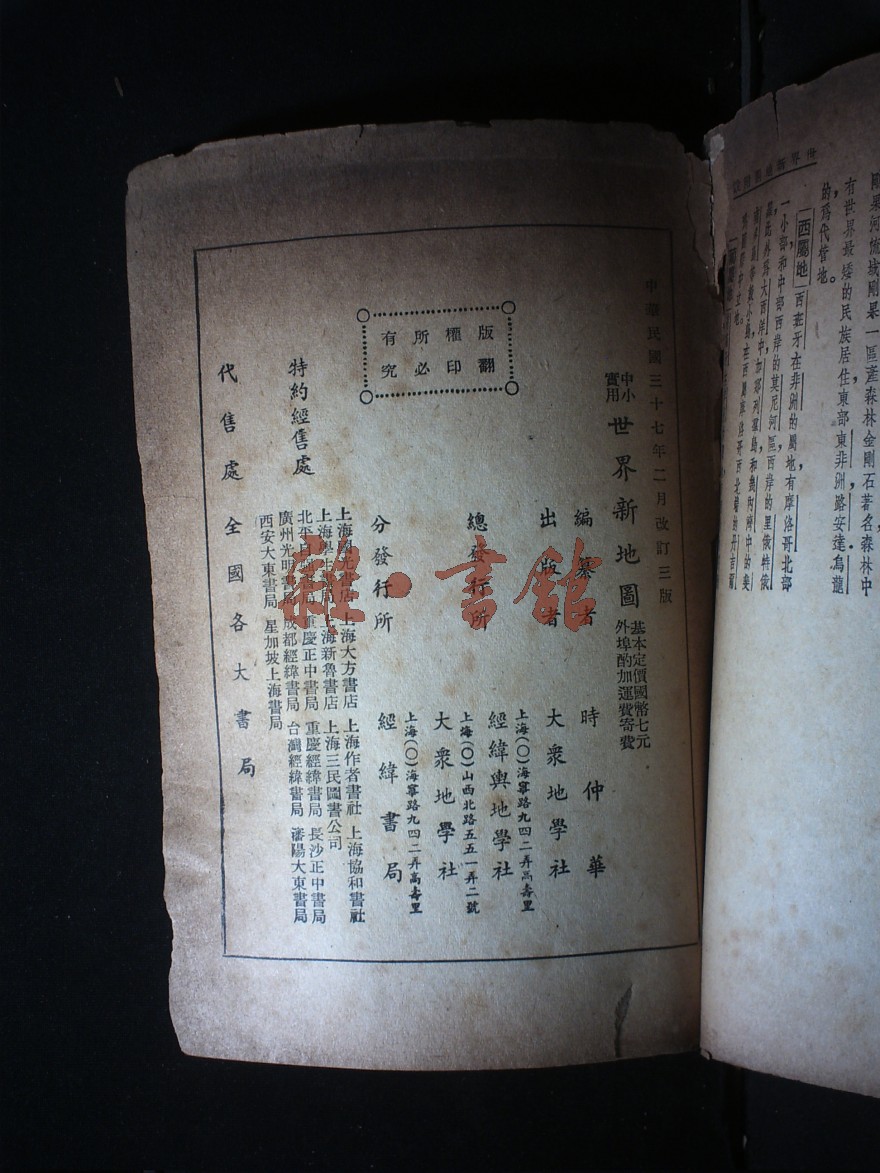 中華民國三十七年二月改訂三版
中小實用
世界新地圖
基本定價國幣七元
外埠酌加運費寄費
編纂者 時仲華
出版者 大衆地學社
上海(〇)海寧路九四二弄高壽里
總發行所 經緯輿地學社
上海(〇)山西北路五五一弄二號
大衆地學社
上海(〇)海寧路九四二弄高壽里
分發行所 經緯書局
版權所有
翻印必究
特約經售處
上海 光書店 上海大方書店 上海作者書社 上海協和書社
上海學生書局 上海新魯書店 上海三民圖書公司
北平 書局 重慶正中書局 重慶經緯書局 長沙正中書局
廣州光明書局 成都經緯書局 台灣經緯書局 瀋陽大東書局
西安大東書局 星加坡上海書局
代售處 全國各大書局
雜·書館
世界新地圖
剛果河流域剛果一區產森林金剛石著名森林中
有世界最矮的民族居住東部東非洲路安達烏龍
的爲代管地。
西屬地 西班牙在非洲的屬地有摩洛哥北部
一小部和中部西岸的莫尼河區西岸的里俄特俄
羅此外爲大西洋中加那列羣島和幾內灣中的斐